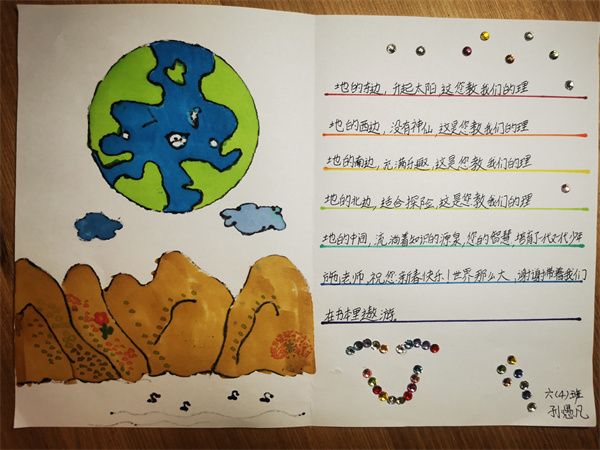 地的东边,升起太阳,这您教我们的理
地的西边,没有神仙,这是您教我们的理
地的南边,充满乐趣,这是您教我们的理
地的北边,适合探险,这是您教我们的理
地的中间,流淌着知识的源泉,您的智慧,培育了一代又代少年
老师,祝您新春快乐!世界那么大,谢谢带着我们
在书本里遨游
六(4)班
孙愚凡